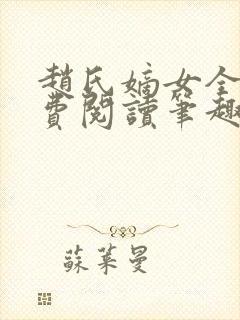 趙氏嫡女全
費閱讀筆趣
蘇葉曼